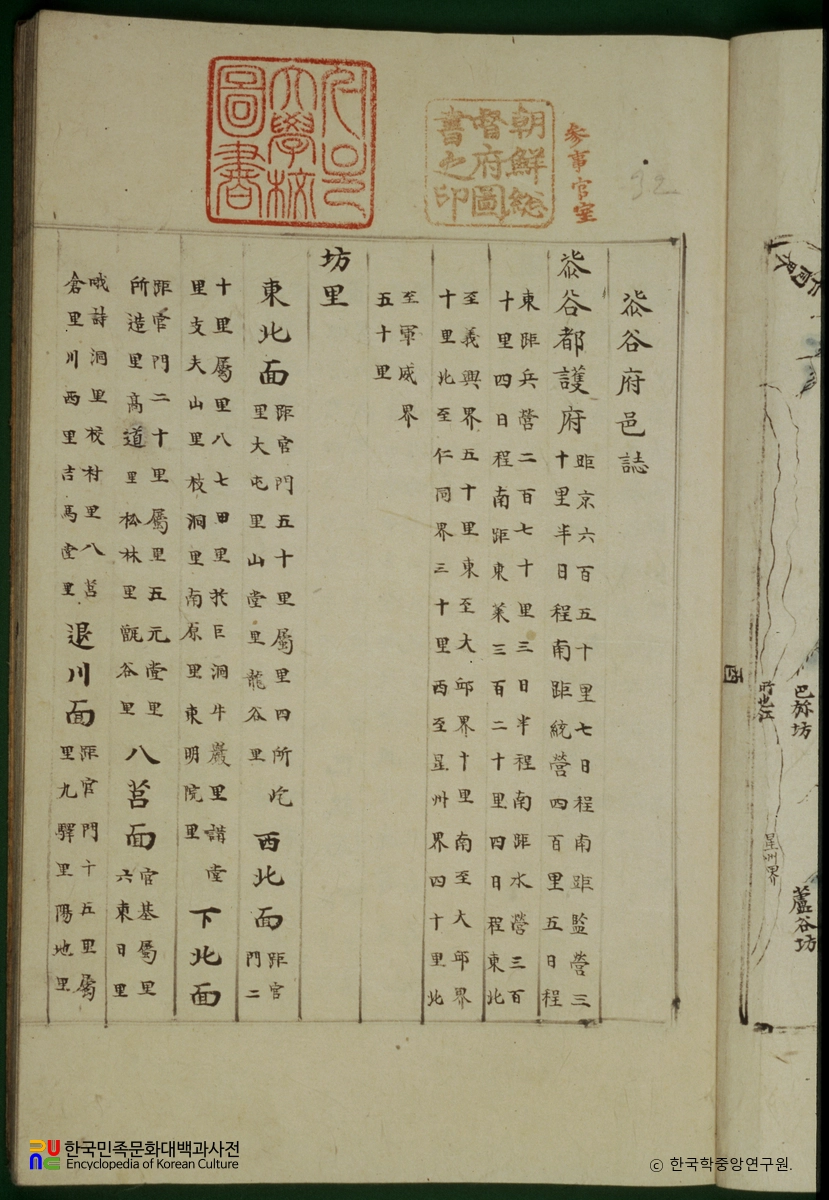 參事官室
朝鮮総
督府圖
書之印
서울
大學校
圖書
柒谷府邑誌
柒谷都護府
距京六百五十里七日程南距監營三
十里半日程南距統營四百里五日程
東距兵營二百七十里三日半程南距水營三百
十里四日程南距東萊三百二十里四日程東北
至義興界五十里東至大邱界十里南至大邱界
十里北至仁同界三十里西至星州界四十里北
至軍威界
五十里
坊里
東北面
距官門五十里屬里四所屹
里大屯里山堂里龍谷里
西北面
距官
門二
十里屬里八七田里扵巨洞牛巖里講堂
里支夫山里枝洞里南原里東明院里
下北面
距官門二十里屬里五元堂里
所造里高道里松林里甑谷里
八莒面
官基屬里
六東日里
哦詩洞里校村里八莒
倉里川西里吉馬堂里
退川面
距官門十五里屬
里九驛里陽地里
巴弥坊
所也江
星州界
蘆谷坊
한국민족문화대백과사전
Encyclopedia of Korean Culture
© 한국학중앙연구원.